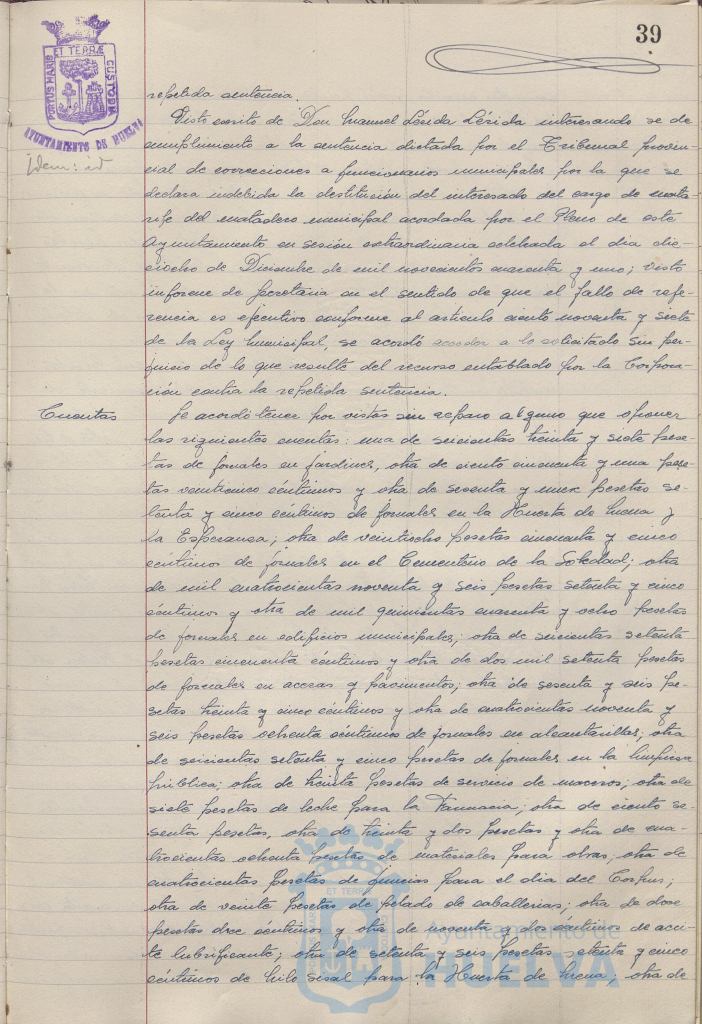 39
PORTUS MARIS ET TERRÆ CUSTODIA
AYUNTAMIENTO DE HUELVA
Idem: id
repetida sentencia.
Visto escrito de Don Manuel Lérida Lérida interesando se de
cumplimiento a la sentencia dictada por el Tribunal provin-
cial de correcciones a funcionarios municipales por la que se
declara indebida la destitución del interesado del cargo de mata-
rife del matadero municipal acordada por el Pleno de este
Ayuntamiento en sesión extraordinaria celebrada el dia die-
ciocho de Diciembre de mil novecientos cuarenta y uno; visto
informe de Secretaria en el sentido de que el fallo de refe-
rencia es ejecutivo conforme al articulo ciento noventa y siete
de la Ley Municipal, se acordó acceder a lo solicitado sin per-
juicio de lo que resulte del recurso entablado por la Corpora-
ción contra la repetida sentencia.
Cuentas
Se acordó tener por vistas sin reparo alguno que oponer
las siguientes cuentas: una de seicientas treinta y siete pese-
tas de jornales en jardines, otra de ciento cincuenta y una pese-
tas veinticinco céntimos y otra de sesenta y una pesetas se-
tenta y cinco céntimos de jornales en la Huerta de Mena y
la Esperanza; otra de veintiocho pesetas cincuenta y cinco
céntimos de jornales en el Cementerio de la Soledad; otra
de mil cuatrocientas noventa y seis pesetas setenta y cinco
céntimos y otra de mil quinientas cuarenta y ocho pesetas
de jornales en edificios municipales; otra de seicientas setenta
pesetas cincuenta céntimos y otra de dos mil setenta pesetas
de jornales en aceras y pavimentos; otra de sesenta y seis pe-
setas treinta y cinco céntimos y otra de cuatrocientas noventa y
seis pesetas ochenta céntimos de jornales en alcantarillas; otra
de seicientas setenta y cinco pesetas de jornales en la limpieza
pública; otra de treinta pesetas de servicio de maceros; otra de
siete pesetas de leche para la Farmacia; otra de ciento se-
senta pesetas, otra de treinta y dos pesetas y otra de cua-
trocientas ochenta pesetas de materiales para obras; otra de
cuatrocientas pesetas de juncias para el dia del Corpus;
otra de veinte pesetas de pelado de caballerias; otra de doce
pesetas doce céntimos y otra de noventa y dos céntimos de acei-
te lubrificante; otra de setenta y seis pesetas setenta y cinco
céntimos de hilo sisal para la Huerta de Mena; otra de
Ayuntamiento de
HUELVA